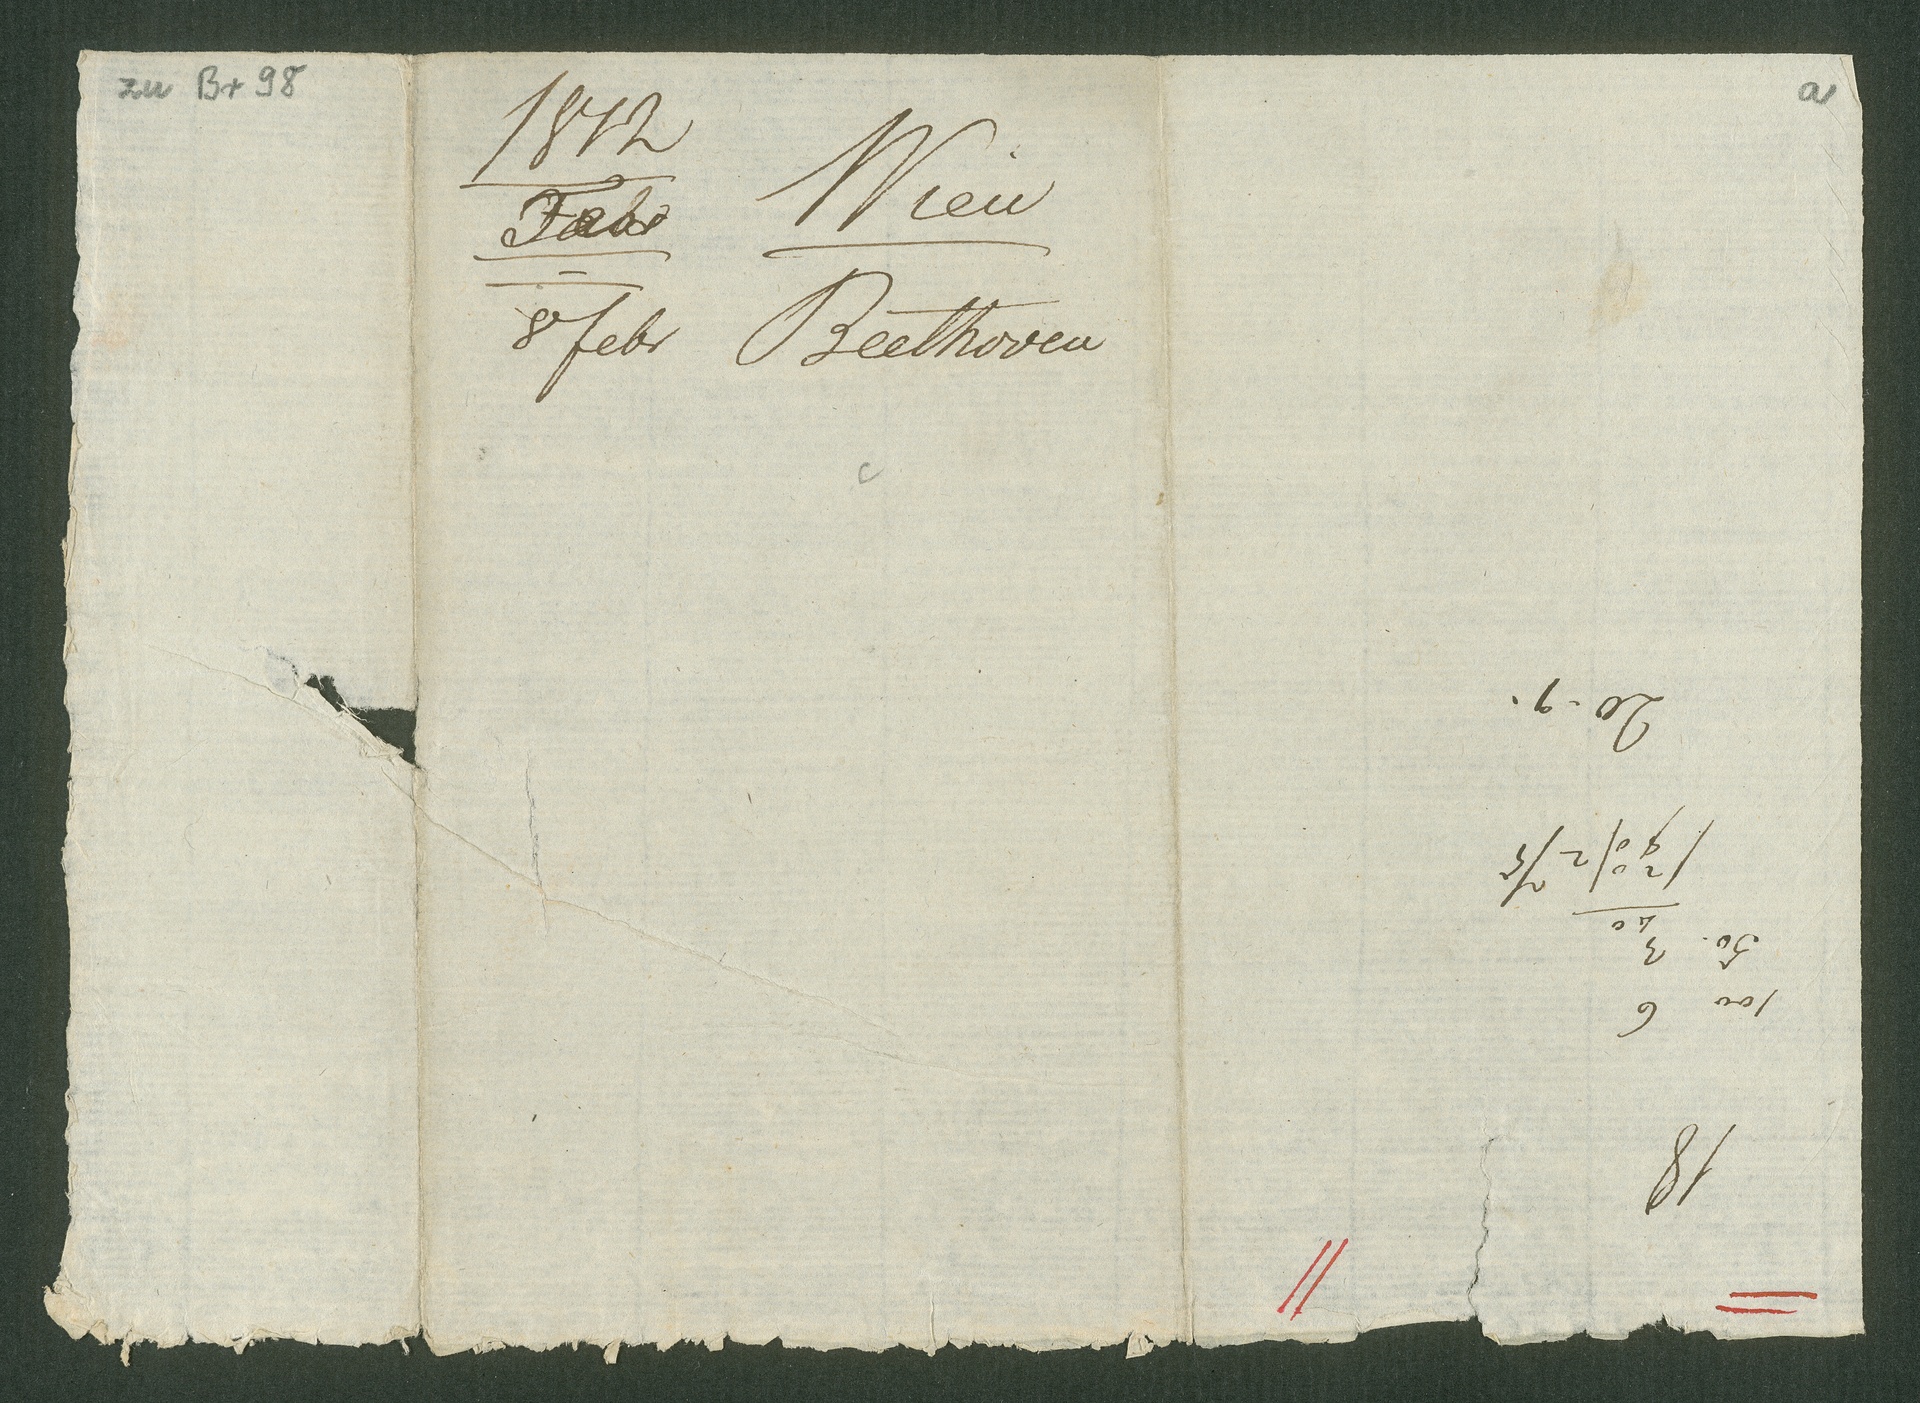 zu Br 98
a
1812 Wien
Febr
8 febr Beethoven
c
18
100 6
50. 3
20.-9.